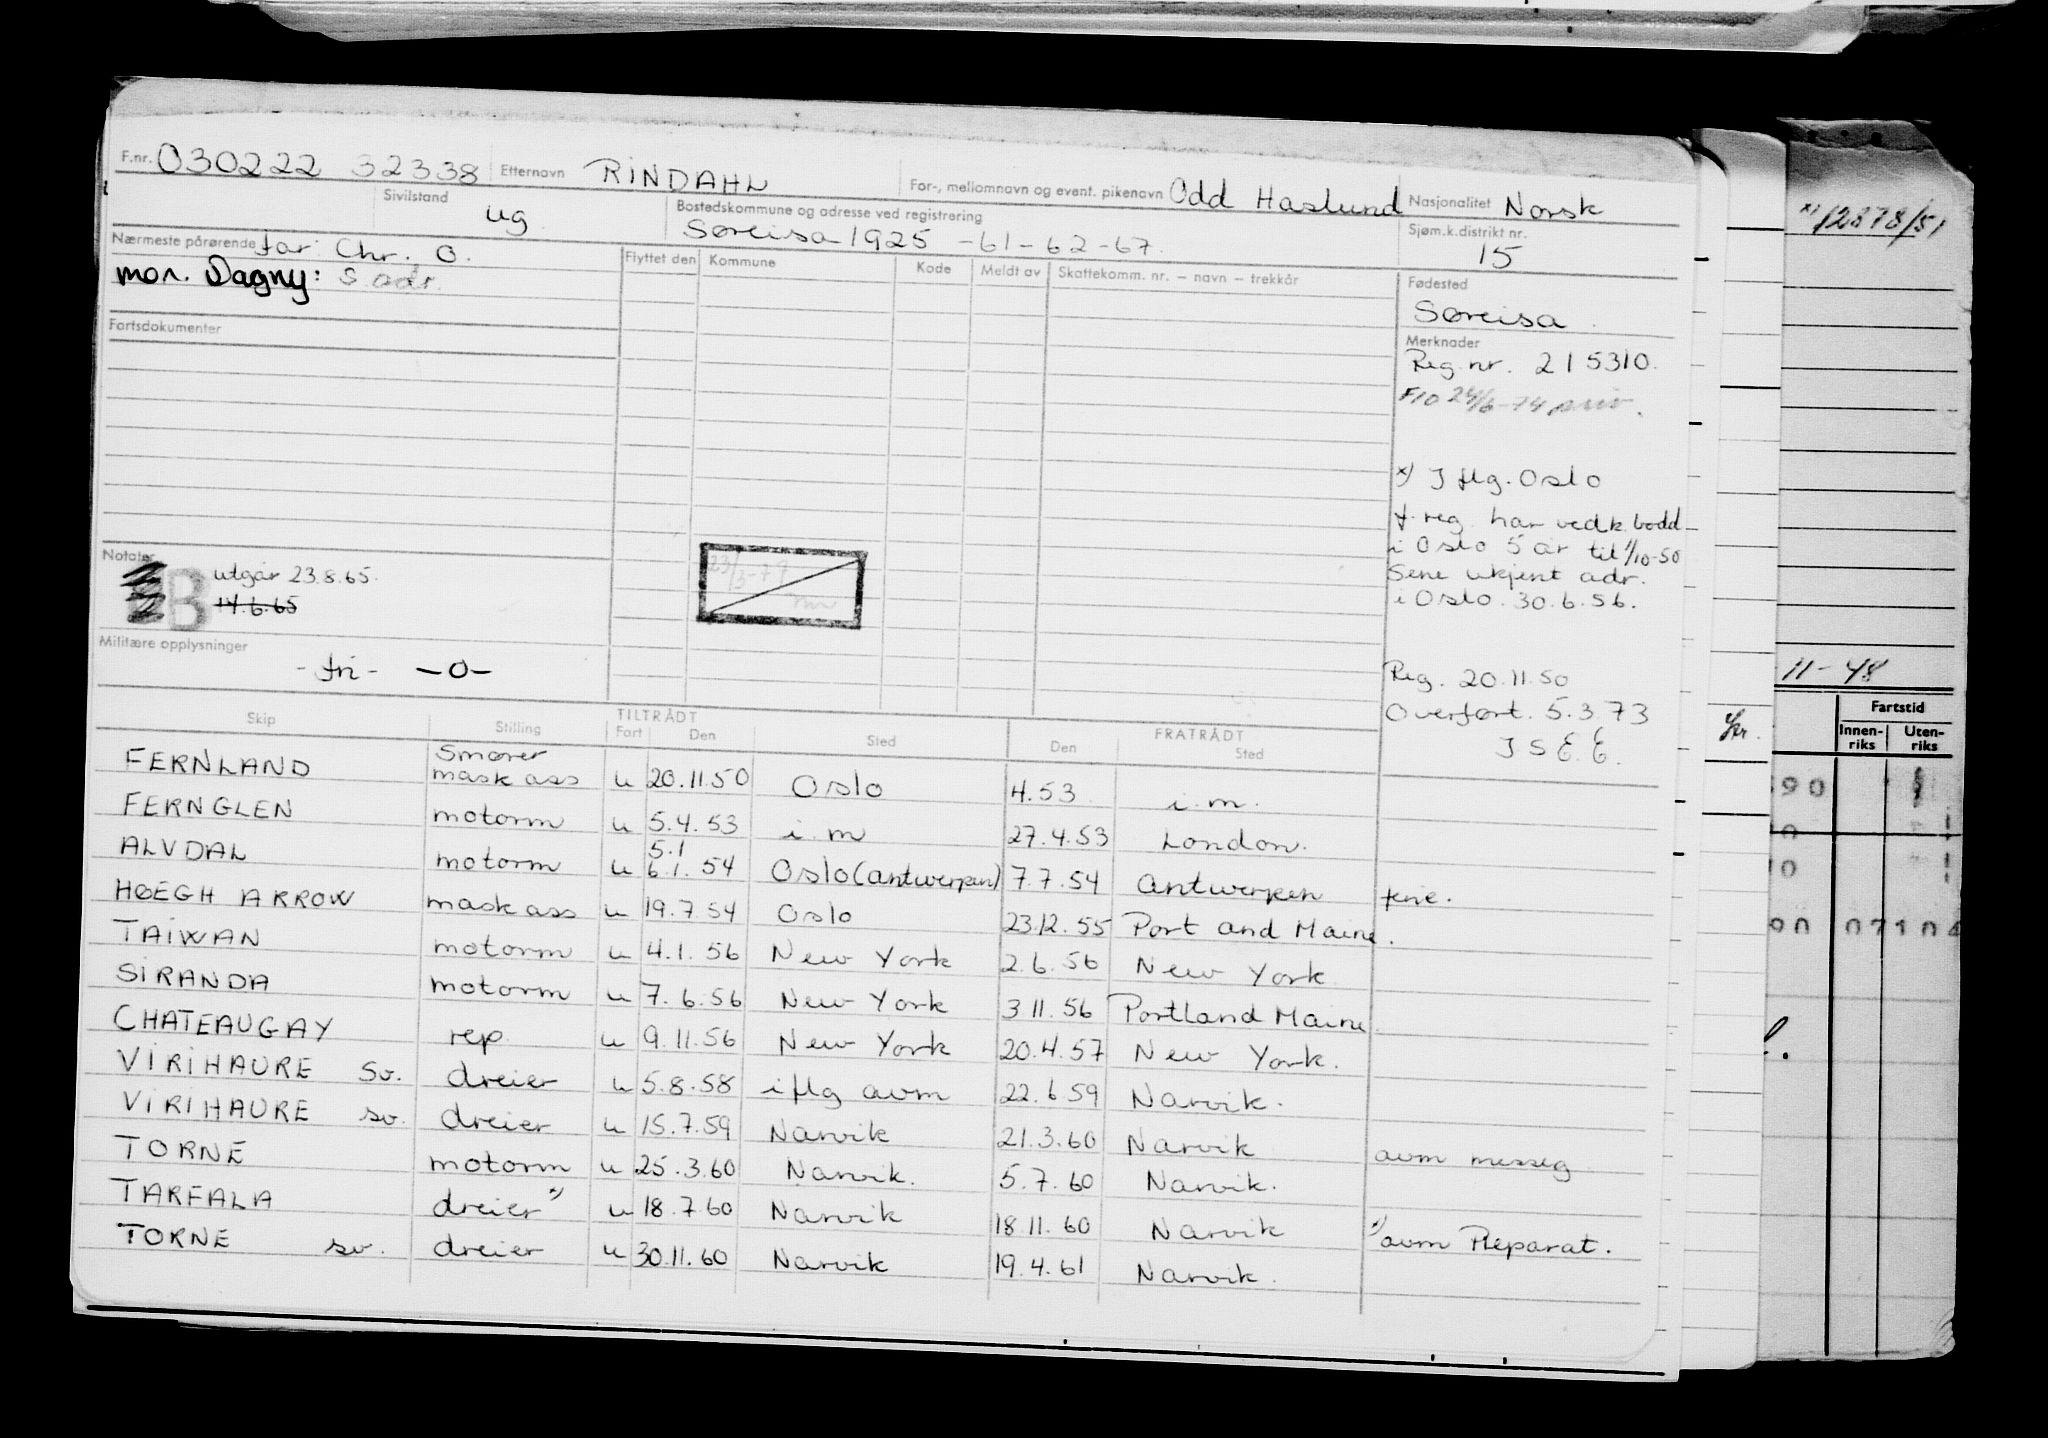 F.nr. 030222 32338 Etternavn RINDAHL For-, mellomnavn og event. pikenavn Odd Haslund Nasjonalitet Norsk
Sivilstand ug Bostedskommune og adresse ved registrering Sjøm.k.distrikt nr. 15
Sørreisa 1925 -61-62-67.
Nærmeste pårørende far: Chr. O. Flyttet den Kommune Kode Meldt av Skattekomm. nr. – navn – trekkår Fødested
mor. Dagny: s. adr.
Søreisa
Fartsdokumenter
Merknader
Reg. nr. 215310.
F10 24/6-74
x) I flg. Oslo
f. reg. har vedk. bodd
i Oslo 5 år til 1/10-50
Sene ukjent adr.
i Oslo. 30.6.56.
Notater
B utgår 23.8.65.
14.6.65
23/3-79
Militære opplysninger
- fri - -0-
Reg. 20.11.50
Overført. 5.3.73
I S E E.
TILTRÅDT FRATRÅDT
Skip Stilling Fart Den Sted Den Sted
FERNLAND Smører mask ass u 20.11.50 Oslo 4.53 i.m.
FERNGLEN motorm u 5.4.53 i.m 27.4.53 London.
ALVDAL motorm u 5.1 6.1.54 Oslo (antwerpen) 7.7.54 antwerpen ferie.
HØEGH ARROW mask ass u 19.7.54 Oslo 23.12.55 Port and Maine.
TAIWAN motorm u 4.1.56 New York 2.6.56 New York
SIRANDA motorm u 7.6.56 New York 3 11.56 Portland Maine
CHATEAUGAY rep. u 9.11.56 New York 20.4.57 New York.
VIRIHAURE Sv. dreier u 5.8.58 iflg avm 22.6.59 Narvik.
VIRIHAURE sv. dreier u 15.7.59 Narvik 21.3.60 Narvik avm messeg
TORNE motorm u 25.3.60 Narvik. 5.7.60 Narvik.
TARFALA dreier x) u 18.7.60 Narvik 18.11.60 Narvik x) avm Reparat.
TORNE sv. dreier u 30.11.60 Narvik 19.4.61 Narvik.
x) 12878/51
11-48
Fartstid
Innen-riks Uten-riks